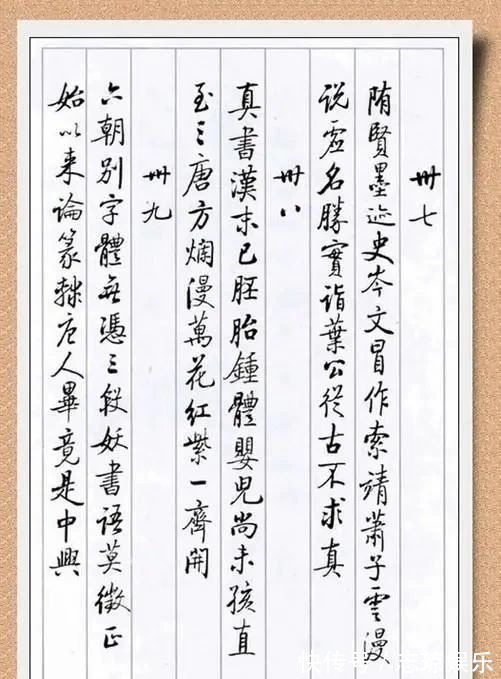 卅七
隋賢墨迹史岑文冒作索靖蕭子雲漫
说虚名勝實詣葉公從古不求真
卅八
真書漢末已胚胎鍾體嬰兒尚未孩直
至三唐方爛漫萬花紅紫一齊開
卅九
六朝別字體無憑三段妖書語莫徵正
始以来論篆隸唐人畢竟是中興
快传号/志煜娱乐